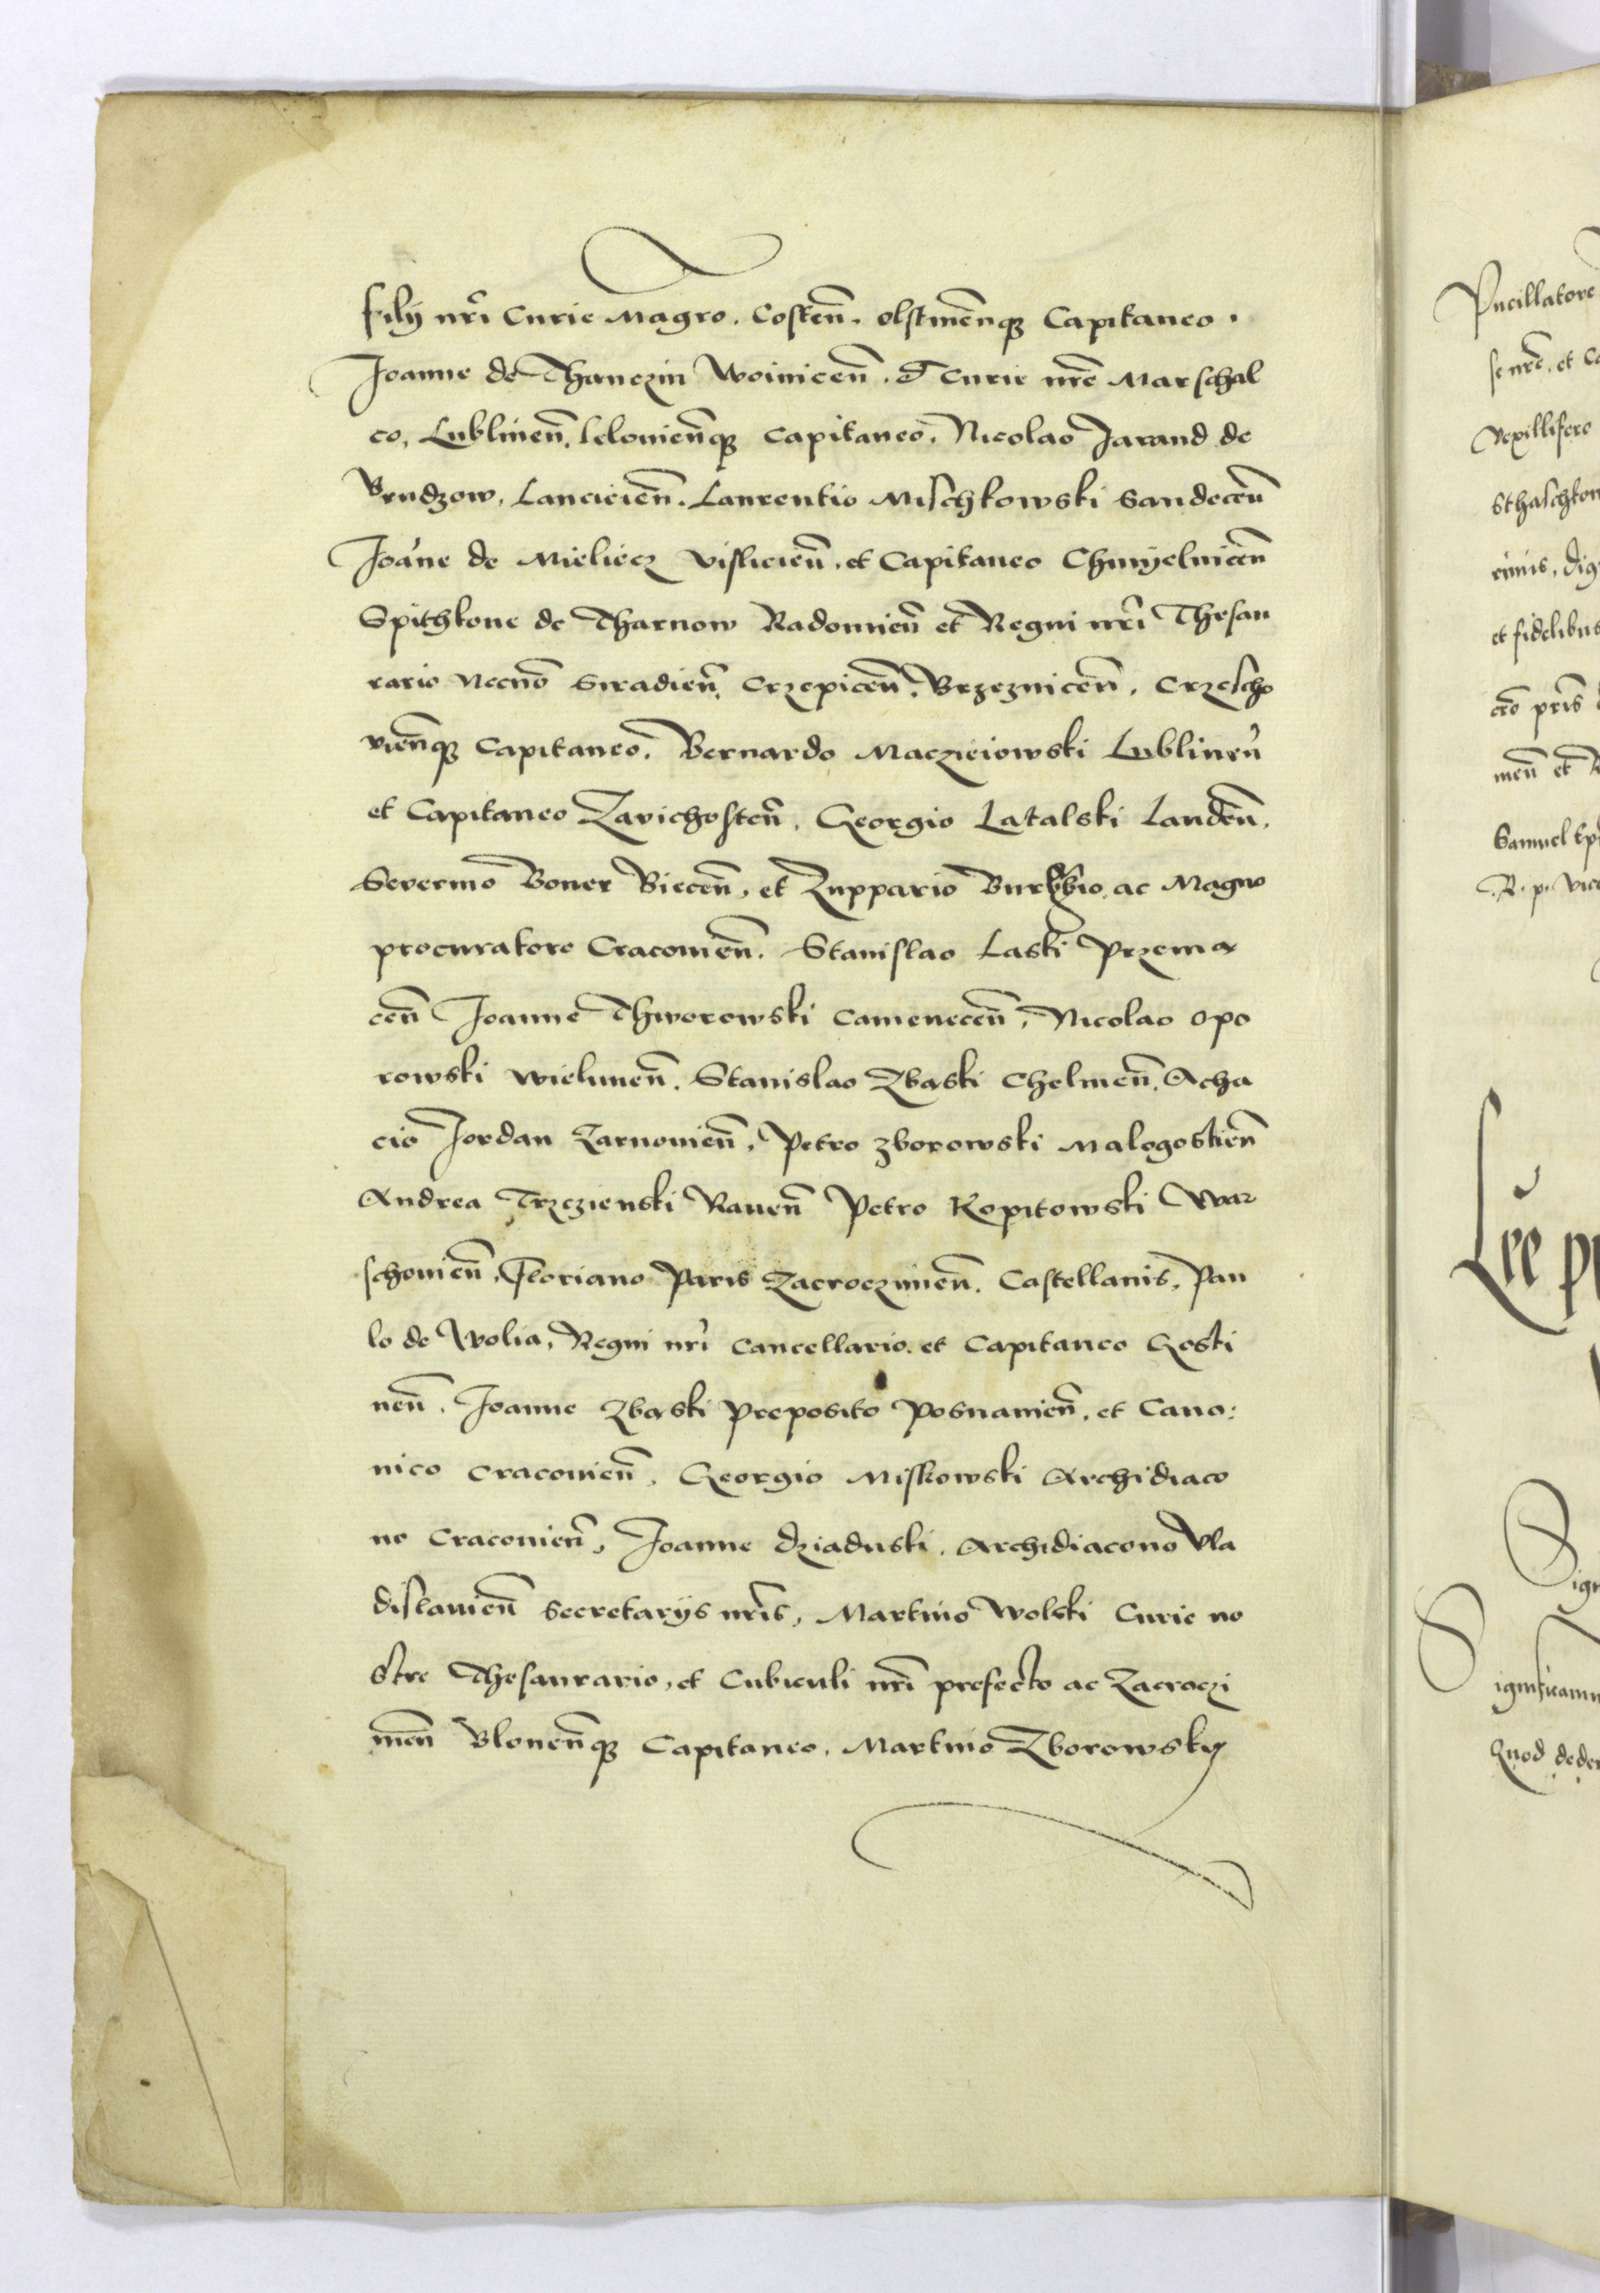 filij nr̃i Curie Magro. Costeñ. olstineñqꝫ Capitaneo.
Joanne de Thanczin Woiniceñ. et Curie nr̃e Marschal
co, Lublineñ, lelovieñqꝫ Capitaneo, Nicolao Jarand de
Brudzow, Lancicieñ. Laurentio Mischkowski Sandeceñ
Joãne de Mieliecz Vislicieñ. et Capitaneo Chmyelniceñ
Spithkone de Tharnow Radomieñ et Regni nr̃i Thesau
rario Necnõ Siradieñ, Crzepiceñ, Brzezniceñ, Crzescho
vieñqꝫ Capitaneo. Bernardo Macziejowski Lublineñ
et Capitaneo Zavichosteñ, Georgio Latalski Landeñ,
Severino Boner Bieceñ, et Zuppario Burgrabio, ac Magno
procuratore Cracovieñ. Stanislao Laski Przema
ceñ Joanne Thworowski Cameneceñ, Nicolao Opo
rowski Wieluneñ. Stanislao Zbaski Chelmeñ, Acha
cio Jordan Zarnovieñ, Petro Zborowski Malogostieñ
Andrea Trzczienski Raveñ Petro Kopitowski War
schovieñ, Floriano Paris Zacroczimieñ. Castellanis, Pau
lo de Wolia, Regni nr̃i Cancellario. et Capitaneo Gosti
neñ, Joanne Zbaski Preposito Posnanieñ, et Cano:
nico Cracovieñ, Georgio Miskowski Archidiaco
no Cracovieñ, Joanne dziaduski, Archidiacono Vla
dislavieñ Secretarijs nr̃is, Martino Wolski Curie no
stre Thesaurario, et Cubiculi nr̃i prefecto ac Zacroczi
meñ Bloneñqꝫ Capitaneo, Martino Zborowsky
Pncillatore
se nr̃e, et
Vexillifero
Sthaschkow
et fidelibus
meñ et
Samuel
Lr̃e
Quod